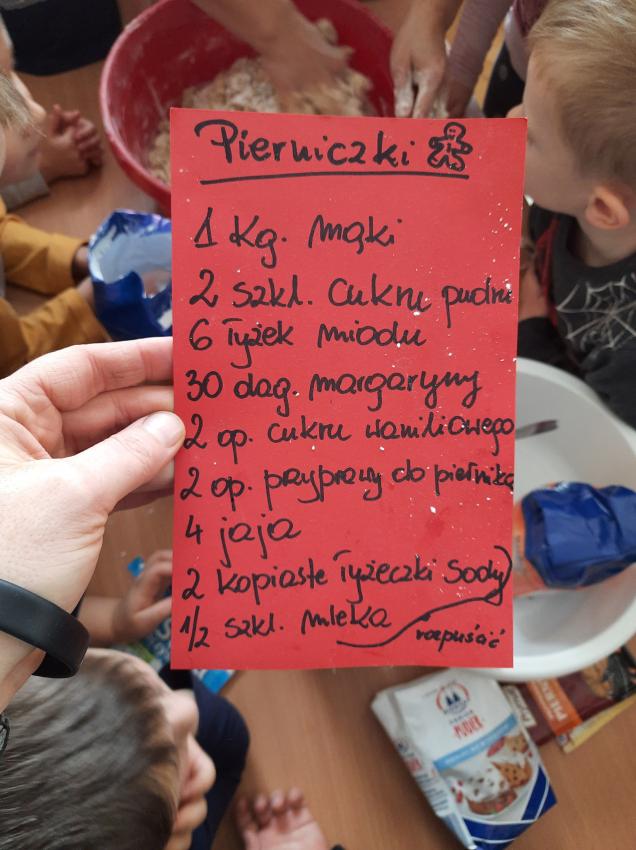 Pierniczki
1 kg. mąki
2 szkl. cukru pudru
6 łyżek miodu
30 dag. margaryny
2 op. cukru waniliowego
2 op. przyprawy do piernika
4 jaja
2 kopiaste łyżeczki sody
1/2 szkl. mleka
rozpuścić
CUKIER
PUDER